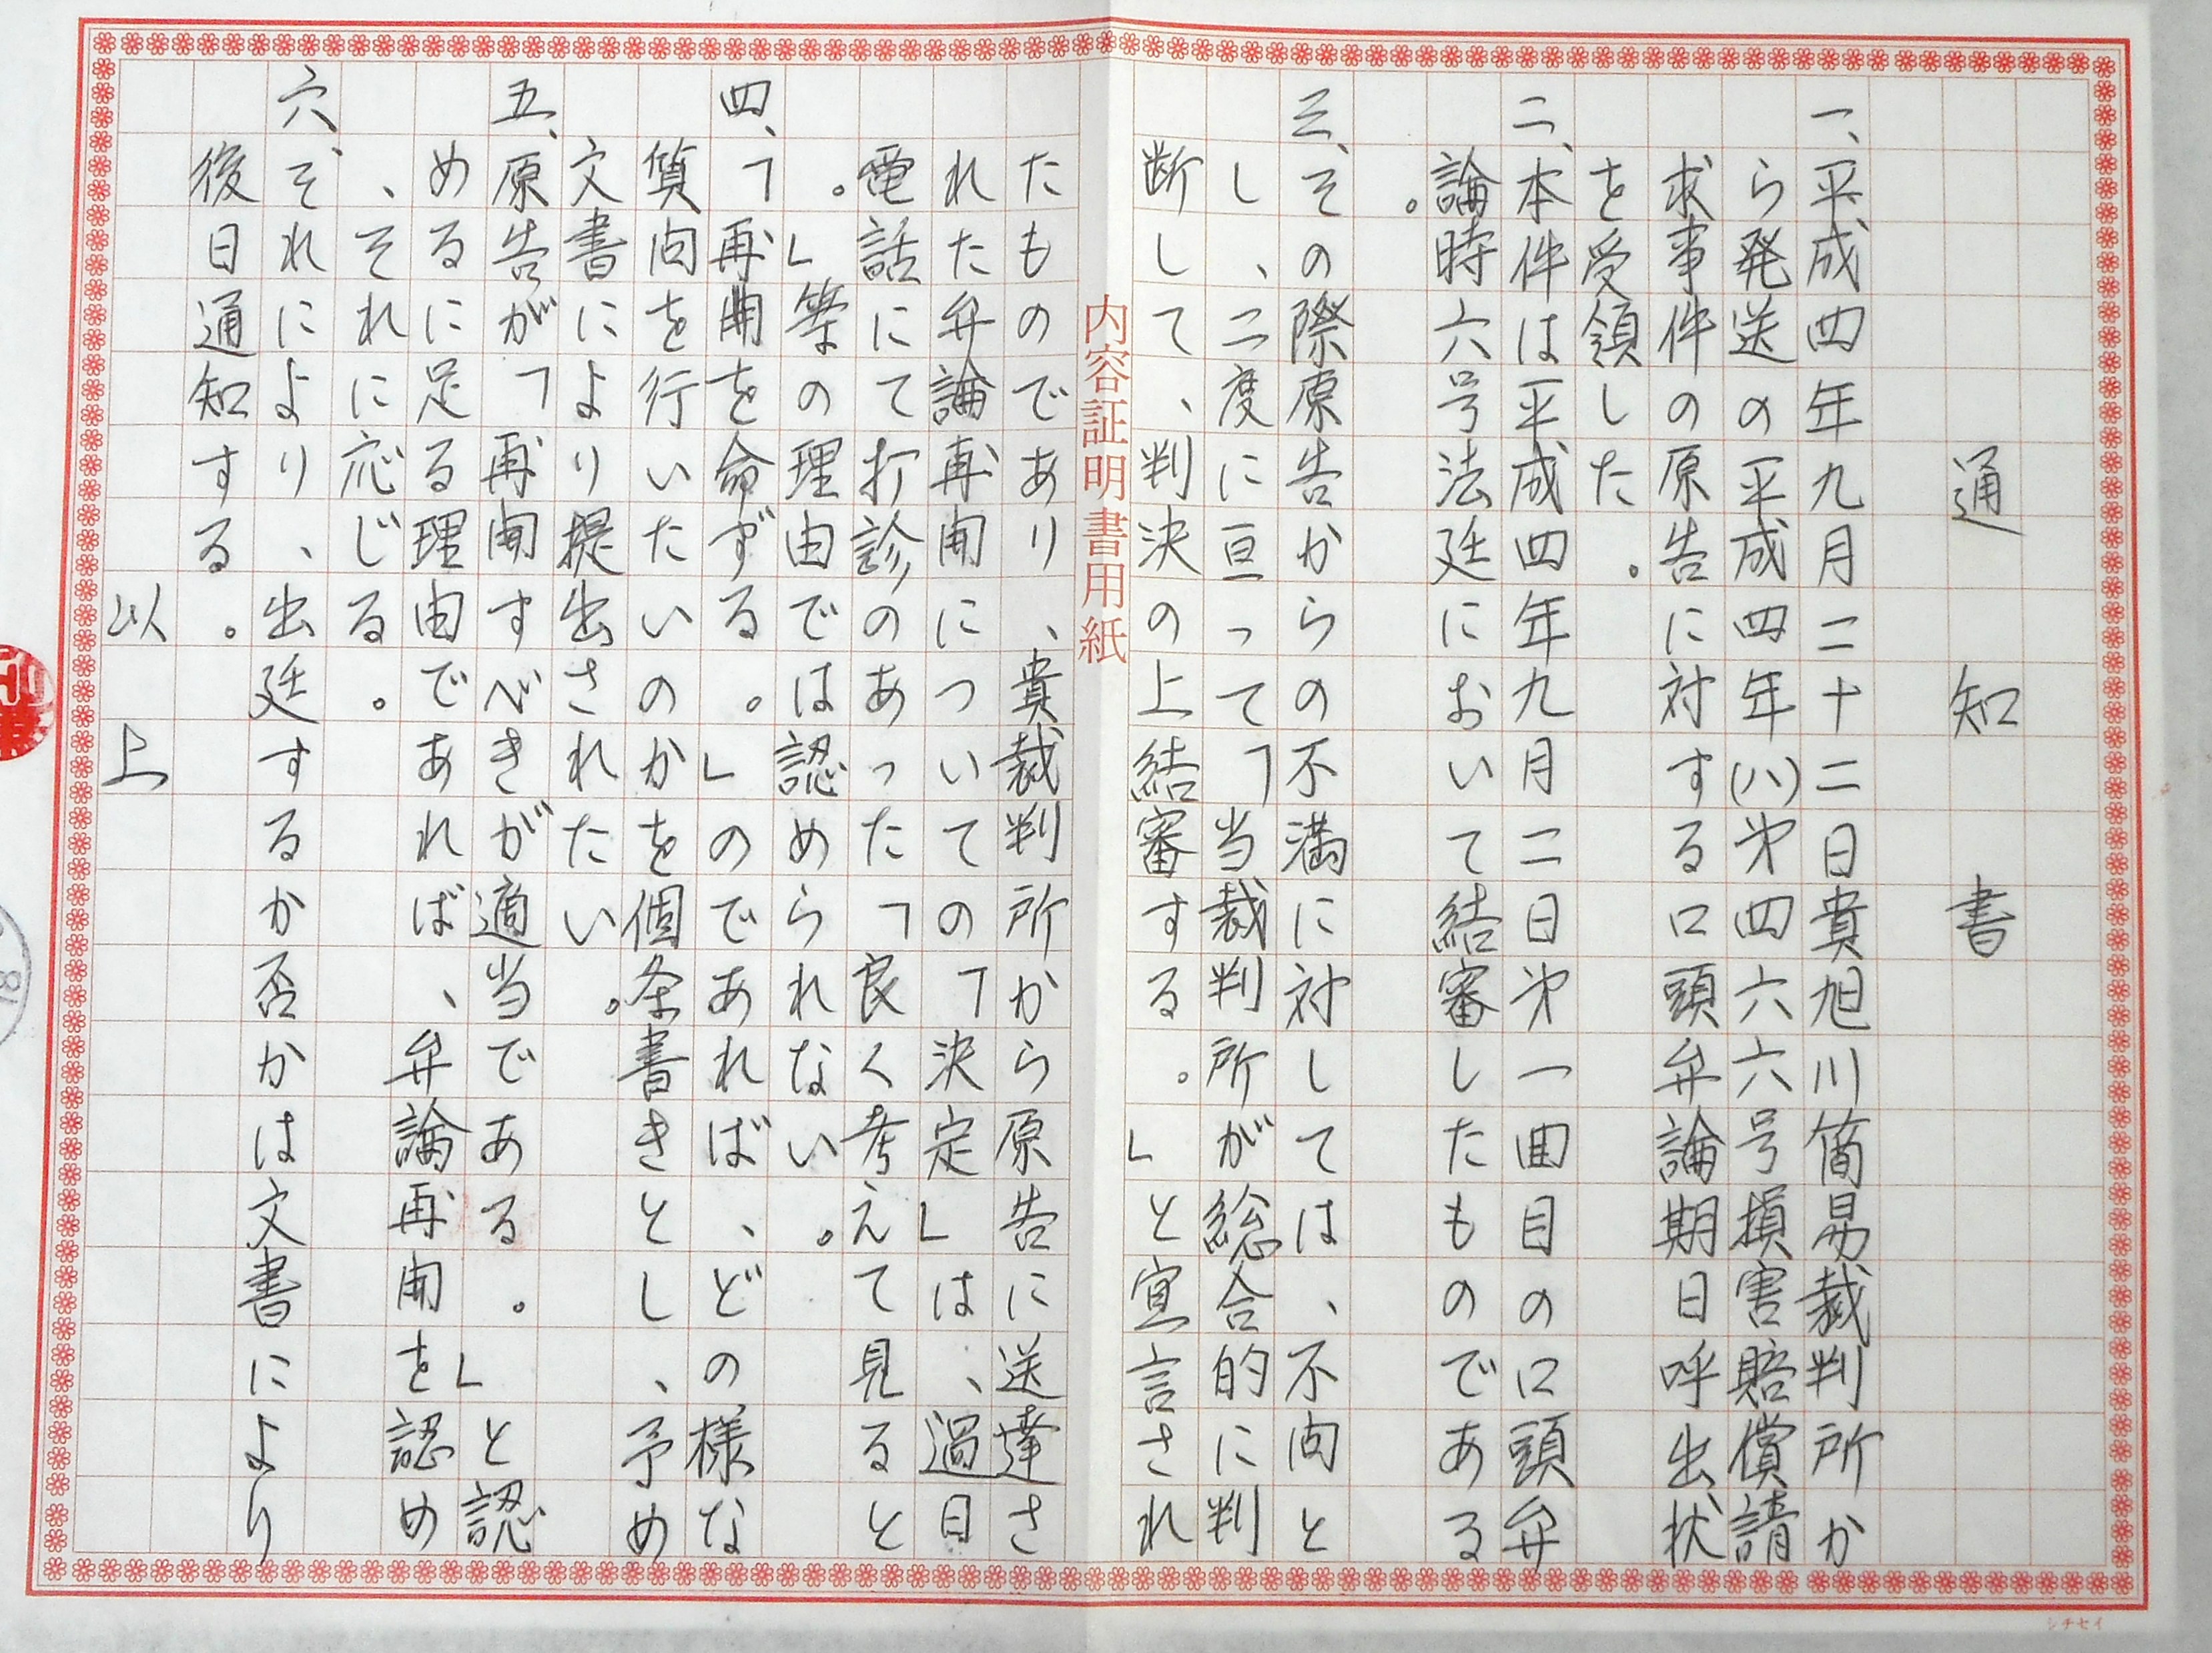 通知書
一、平成四年九月二十二日貴旭川簡易裁判所か
ら発送の平成四年(ハ)第四六六号損害賠償請
求事件の原告に対する口頭弁論期日呼出状
を受領した。
二、本件は平成四年九月二日第一回目の口頭弁
論時六号法廷において結審したものである
。
三、その際原告からの不満に対しては、不問と
し、二度に亘って「当裁判所が総合的に判
断して、判決の上結審する。」と宣言され
たものであり、貴裁判所から原告に送達さ
れた弁論再開についての「決定」は、過日
電話にて打診のあった「良く考えて見ると
。」等の理由では認められない。
四、「再開を命ずる。」のであれば、どの様な
質問を行いたいのかを個条書きとし、予め
文書により提出されたい。
五、原告が「再開すべきが適当である。」と認
めるに足る理由であれば、弁論再開を認め
、それに応じる。
六、それにより、出廷するか否かは文書により
後日通知する。
以上
内容証明書用紙
シチセイ